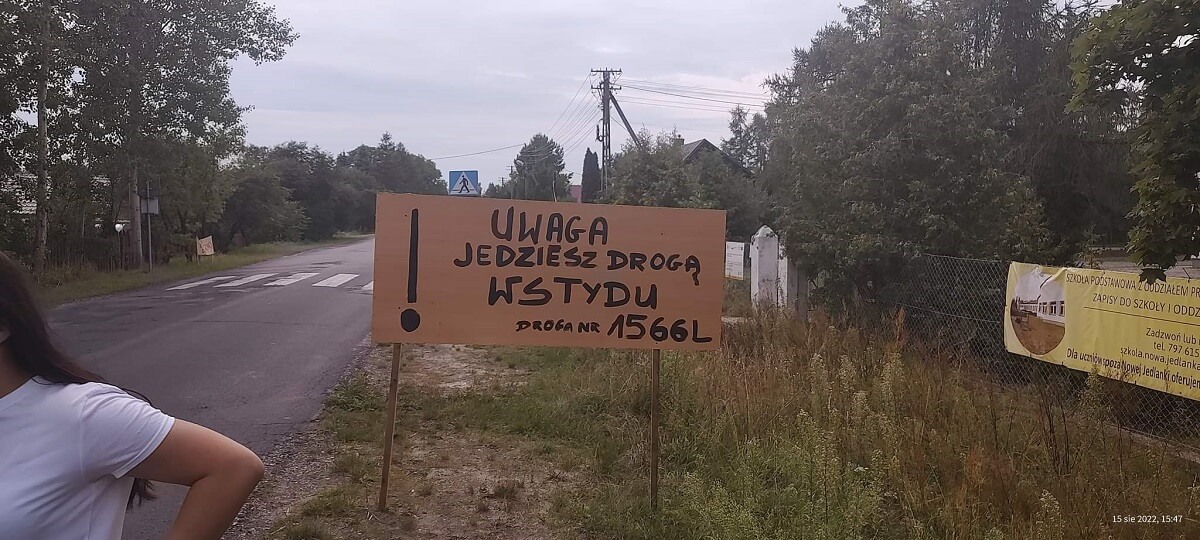 ! UWAGA
JEDZIESZ DROGĄ
WSTYDU
DROGA NR 1566L
SZKOŁA PODSTAWOWA Z ODDZIAŁEM
ZAPISY DO SZKOŁY I
Zadzwoń lub
tel. 797 615
szkola.nowa.jedlanka
Dla uczniów spoza Nowej Jedlanki
15 sie 2022, 15:47